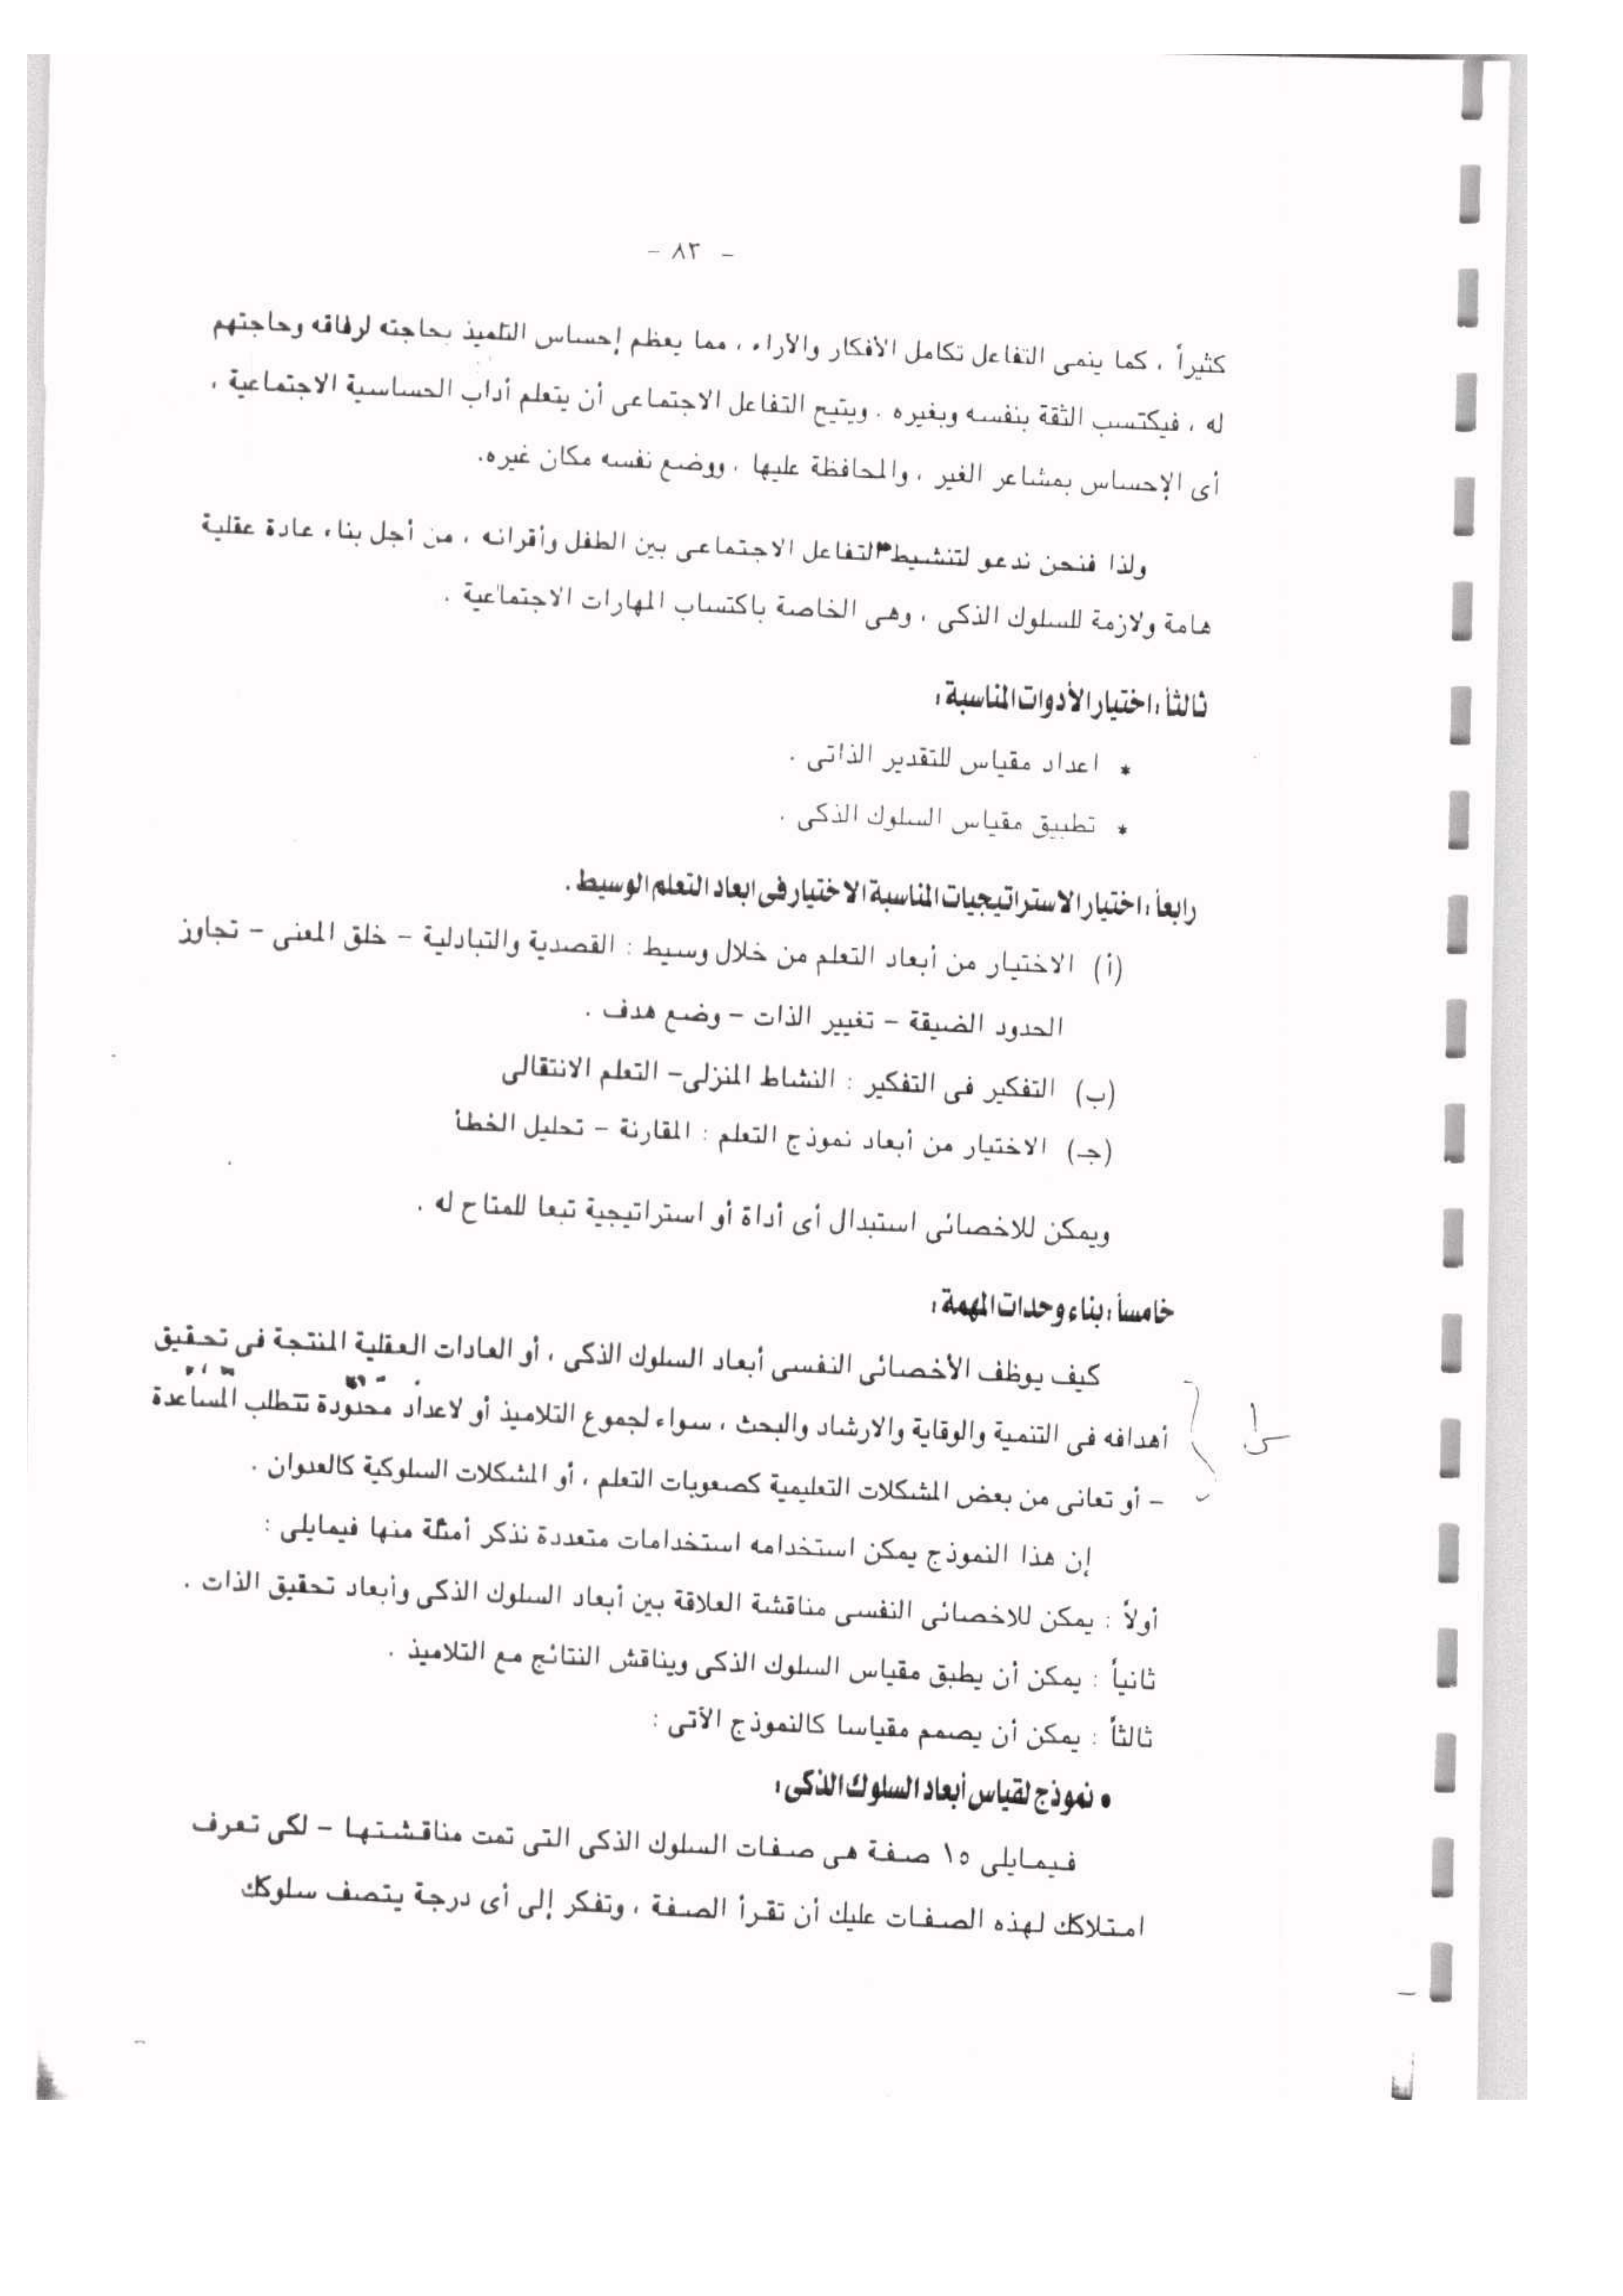 - ٨٣ -
كثيراً ، كما ينمى التفاعل تكامل الأفكار والأراء ، مما يعظم إحساس التلميذ بحاجته لرفاقه وحاجتهم
له ، فيكتسب الثقة بنفسه وبغيره . ويتيح التفاعل الاجتماعى أن يتعلم أداب الحساسية الاجتماعية ،
أى الإحساس بمشاعر الغير ، والمحافظة عليها ، ووضع نفسه مكان غيره.
ولذا فنحن ندعو لتنشيط التفاعل الاجتماعى بين الطفل وأقرانه ، من أجل بناء عادة عقلية
هامة ولازمة للسلوك الذكى ، وهى الخاصة باكتساب المهارات الاجتماعية .
ثالثاً : اختيار الأدوات المناسبة :
* اعداد مقياس للتقدير الذاتى .
* تطبيق مقياس السلوك الذكى .
رابعاً : اختيار الاستراتيجيات المناسبة الاختيار فى ابعاد التعلم الوسيط .
(أ) الاختيار من أبعاد التعلم من خلال وسيط : القصدية والتبادلية - خلق المعنى - تجاوز
الحدود الضيقة - تغيير الذات - وضع هدف .
(ب) التفكير فى التفكير : النشاط المنزلى- التعلم الانتقالى
(جـ) الاختيار من أبعاد نموذج التعلم : المقارنة - تحليل الخطأ
ويمكن للاخصائى استبدال أى أداة أو استراتيجية تبعا للمتاح له .
خامساً : بناء وحدات المهمة :
كيف يوظف الأخصائى النفسى أبعاد السلوك الذكى ، أو العادات العقلية المنتجة فى تحقيق
أهدافه فى التنمية والوقاية والارشاد والبحث ، سواء لجموع التلاميذ أو لاعداد محدودة تتطلب المساعدة
- أو تعانى من بعض المشكلات التعليمية كصعوبات التعلم ، أو المشكلات السلوكية كالعدوان .
إن هذا النموذج يمكن استخدامه استخدامات متعددة نذكر أمثلة منها فيمايلى :
أولاً : يمكن للاخصائى النفسى مناقشة العلاقة بين أبعاد السلوك الذكى وأبعاد تحقيق الذات .
ثانياً : يمكن أن يطبق مقياس السلوك الذكى ويناقش النتائج مع التلاميذ .
ثالثاً : يمكن أن يصمم مقياسا كالنموذج الأتى :
• نموذج لقياس أبعاد السلوك الذكى :
فيمايلى ١٥ صفة هى صفات السلوك الذكى التى تمت مناقشتها - لكى تعرف
امتلاكك لهذه الصفات عليك أن تقرأ الصفة ، وتفكر إلى أى درجة يتصف سلوكك